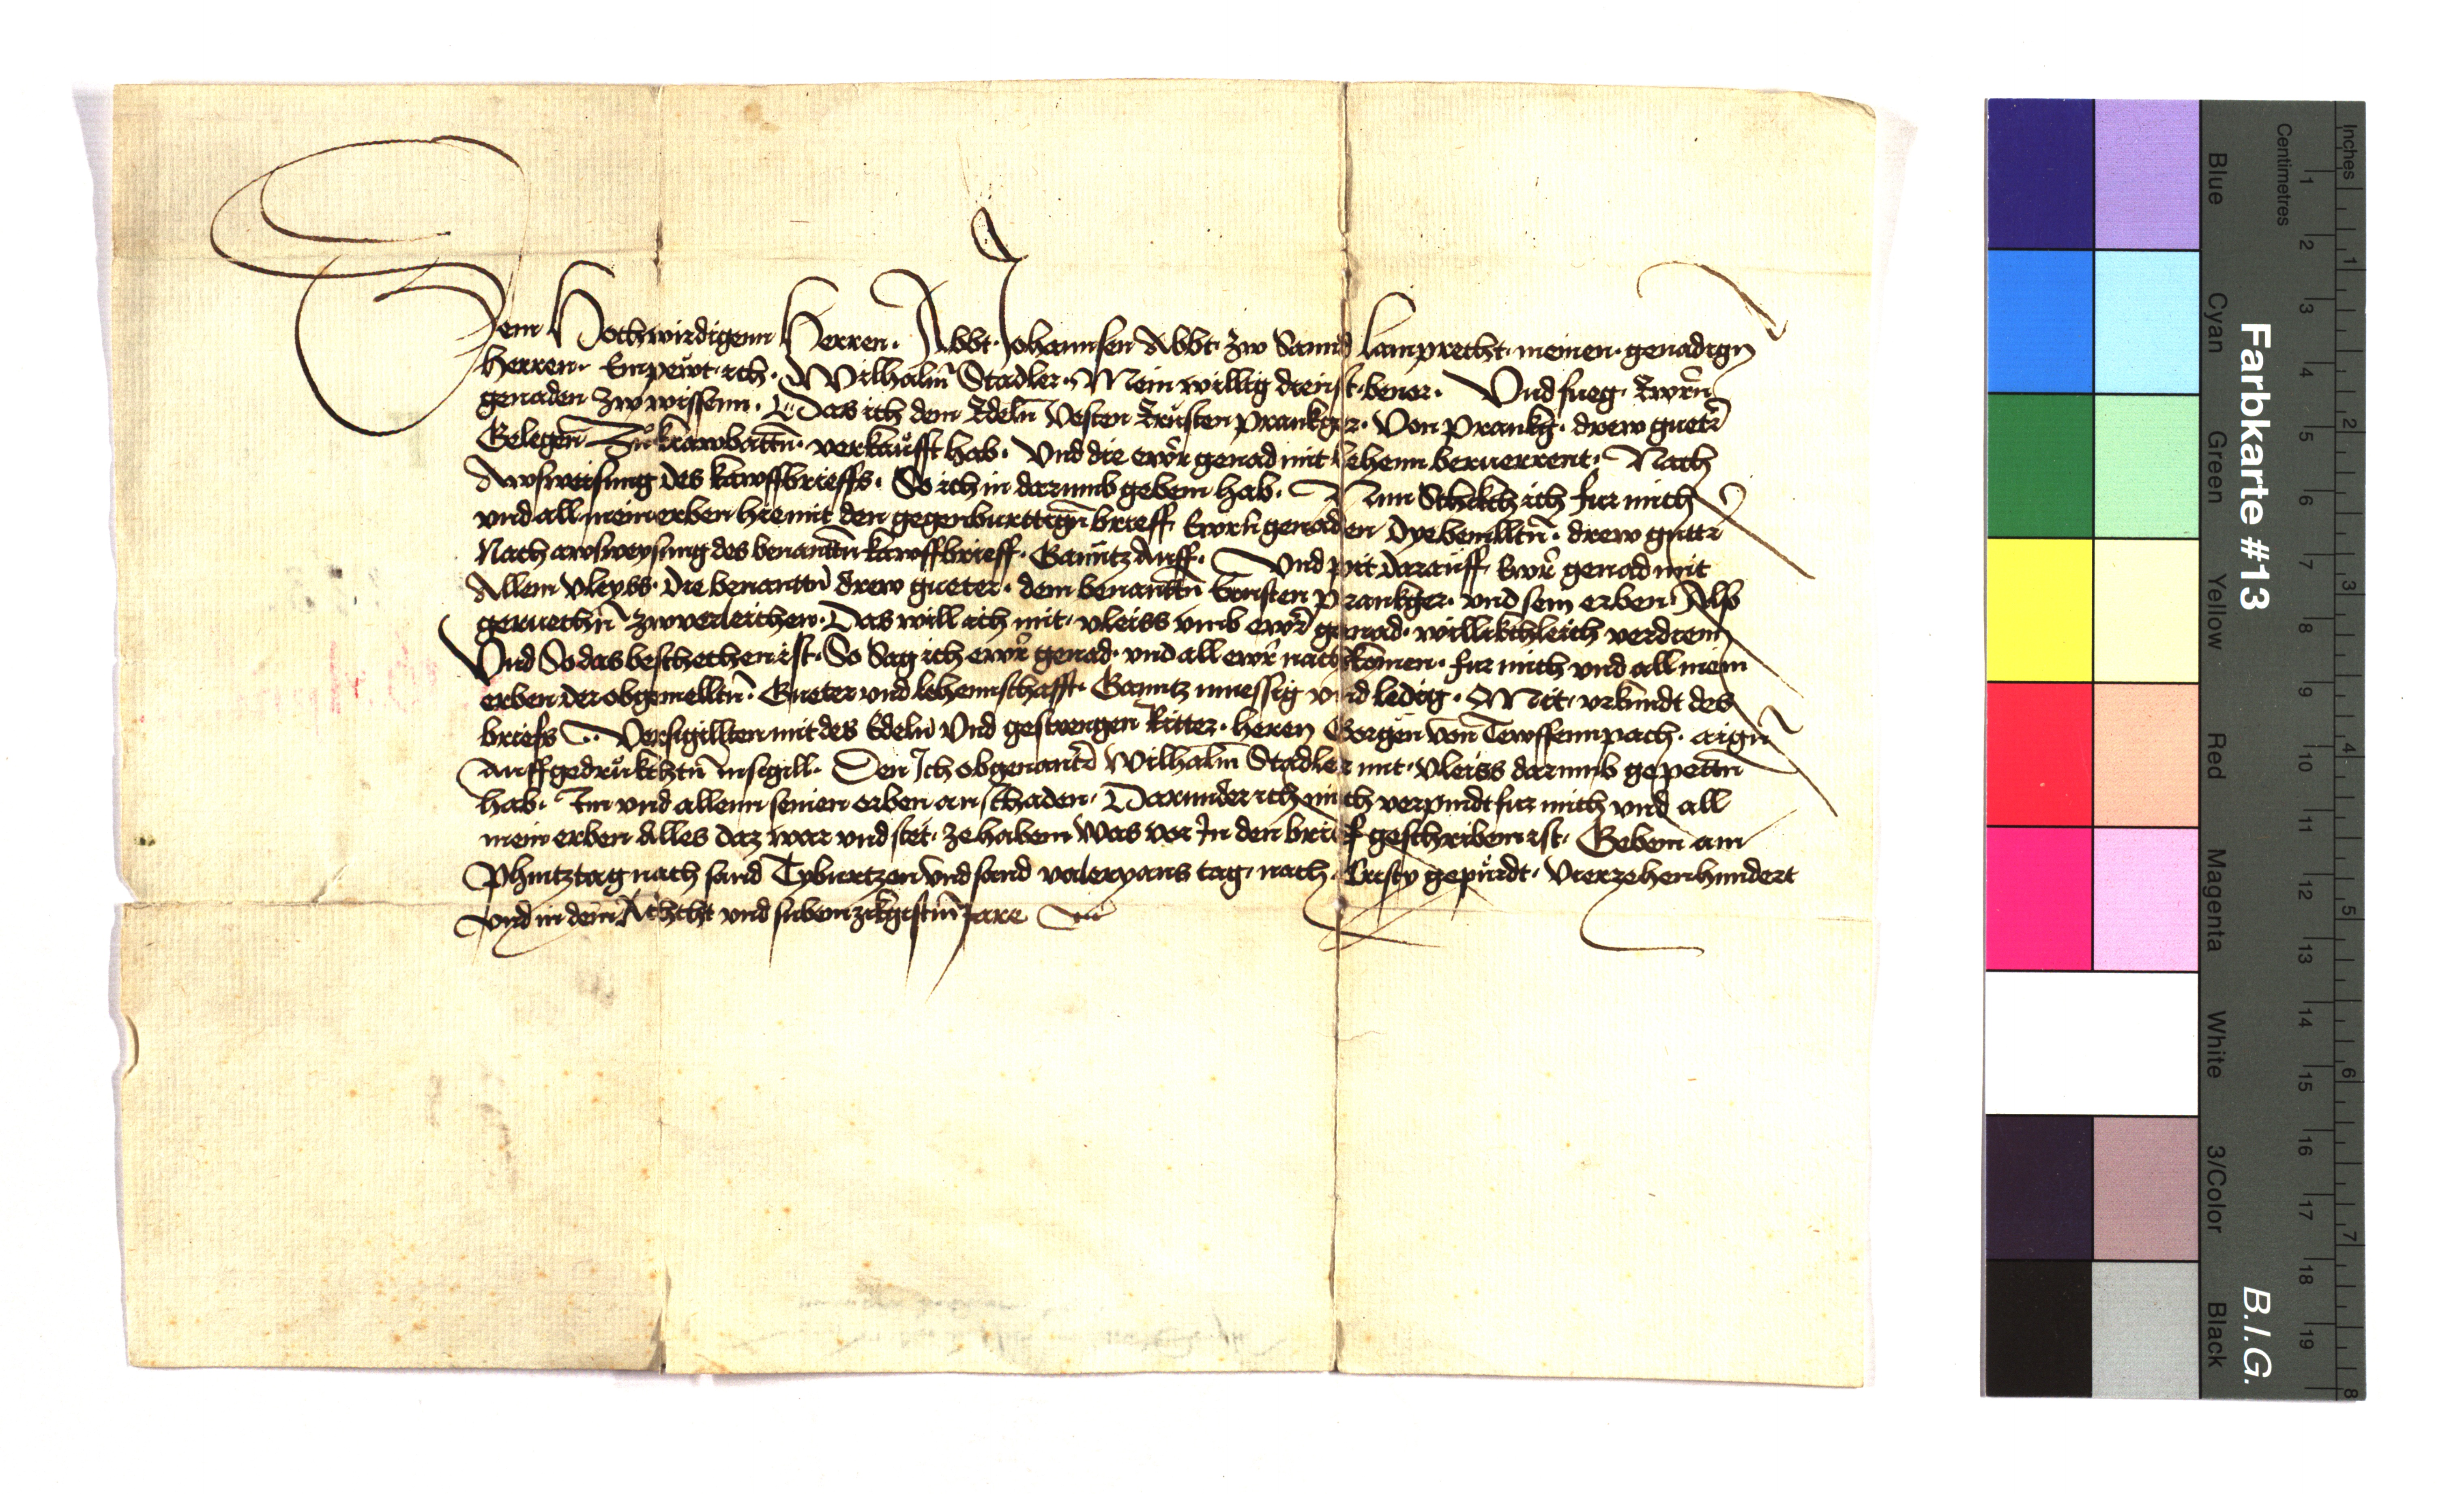 Dem Hochwirdigenn Herren · Abbt · Johannsen Abbt · zw Sannd Lamprecht · meinen · genadign
Herren · Empewt · ich · Wilhalm̄ Stadler · Mein willig dienst · beuor · Vnd fueg · Ewrn̄
genaden zw wissenn · Das ich dem Edeln̄ Vesten Ernsten prankger · Von prankḡ · drew guetr̄
Gelegen̄ Zu krawbattn̄ · verkaufft hab · Vnd die ewr̄ genad mit lehenn beruerrent · Nach
Awsweisung des kawffbrieffs · So ich in darumb gebenn hab · Nun Schikch ich fur mich
vnd all mein erben hiemit den gegenburttign̄ brieff Ewrn̄ genaden Dye bemelltn̄ · drew guttr̄
Nach awsweysung des benanttn̄ kawffbrieff · Ganntz Auff · Vnd pit darauff Ewr̄ genad mit
Allem vleyss · Die benanttn̄ drew gueter · dem benanttn̄ Ernsten prankger · vnd sein erben · Also
geruechn̄ zwverleichen · Das will ich mit · vleiss vmb ewr̄ genad · willikchleich verdienn
Vnd So das beschechen ist · So Sag ich ewr̄ genad · vnd all ewr̄ nachkomen · fur mich vnd all mein
erben der obgemelltn̄ · Gueter vnd lehennschafft · Ganntz muessig vnd ledig · Mit · vrkundt des
briefs Versigillten mit des Edeln̄ Vnd gestrengen Ritter · heren Gorgen von Tewffennpach · aign̄
Auffgedrukchtn̄ insigill · Den Ich obgenantr̄ Wilhalm̄ Stadler mit · vleiss darumb gepettn̄
hab · Im vnd allenn seinen erben an schaden · Darunder ich mich verpindt fur mich vnd all
mein erben Alles daz war vnd stet · ze habenn Was vor In den brief geschribenn ist · Gebenn am
Phintztag nach sand Tyburtzen vnd sand valeryans tag · nach · Cristy gepurdt · Vierzehenhundert
vnd in dem Achtcht vnd subenzikgistn̄ Jare
Farbkarte #13
B.I.G.
Blue Cyan Green Yellow Red Magenta White 3/Color Black
Centimetres 1 2 3 4 5 6 7 8 9 10 11 12 13 14 15 16 17 18 19
Inches 1 2 3 4 5 6 7 8